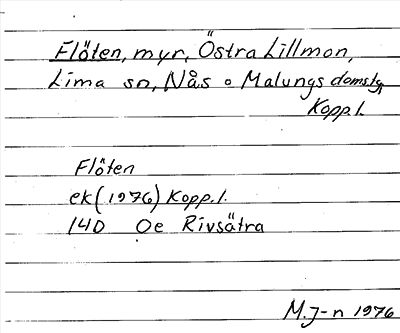 Flöten, myr, Östra Lillmon,
Lima sn, Nås o Malungs domslg,
Kopp. l.
Flöten
ek (1976) Kopp. l.
14D 0e Rivsätra
M.J-n 1976